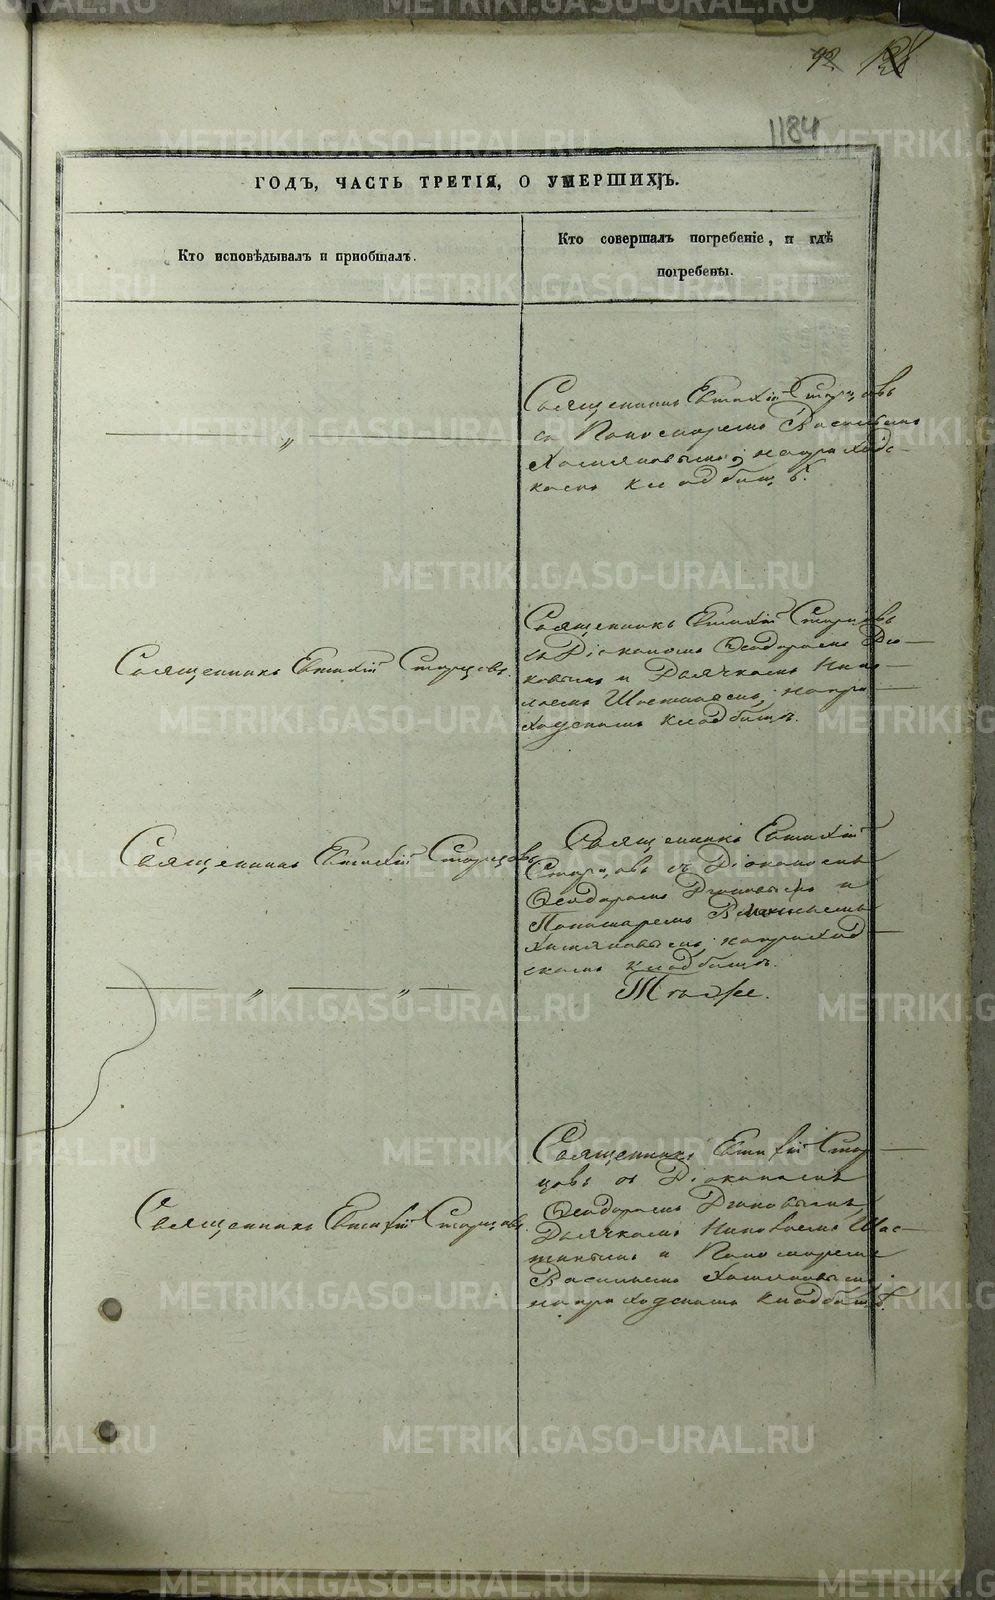 1184
ГОДЪ, ЧАСТЬ ТРЕТІЯ, О УМЕРШИХЪ.
Кто исповѣдывалъ и пріобщалъ.
Кто совершалъ погребеніе, и гдѣ
погребены.
Священникъ Евтихій Старцовъ
съ Пономаремъ Васильемъ
Хомяковымъ; на приход-
скомъ кладбищѣ.
Священникъ Евтихій Старцовъ.
Священникъ Евтихій Старцовъ
съ Діакономъ Ѳеодоромъ
и Дьячкомъ Нико-
лаемъ на при-
ходскомъ кладбищѣ.
Священникъ Евтихій Старцовъ.
Священникъ Евтихій
Старцовъ съ Діакономъ
Ѳеодоромъ и
Пономаремъ Васильемъ
Хомяковымъ; на приход
скомъ кладбищѣ.
Тѣже.
Священникъ Евтихій Старцовъ.
Священникъ Евтихій Стар-
цовъ съ Діакономъ
Ѳеодоромъ
Дьячкомъ Николаемъ
и Пономаремъ
Васильемъ Хомяковымъ;
на приходскомъ кладбищѣ.
METRIKI.GASO-URAL.RU